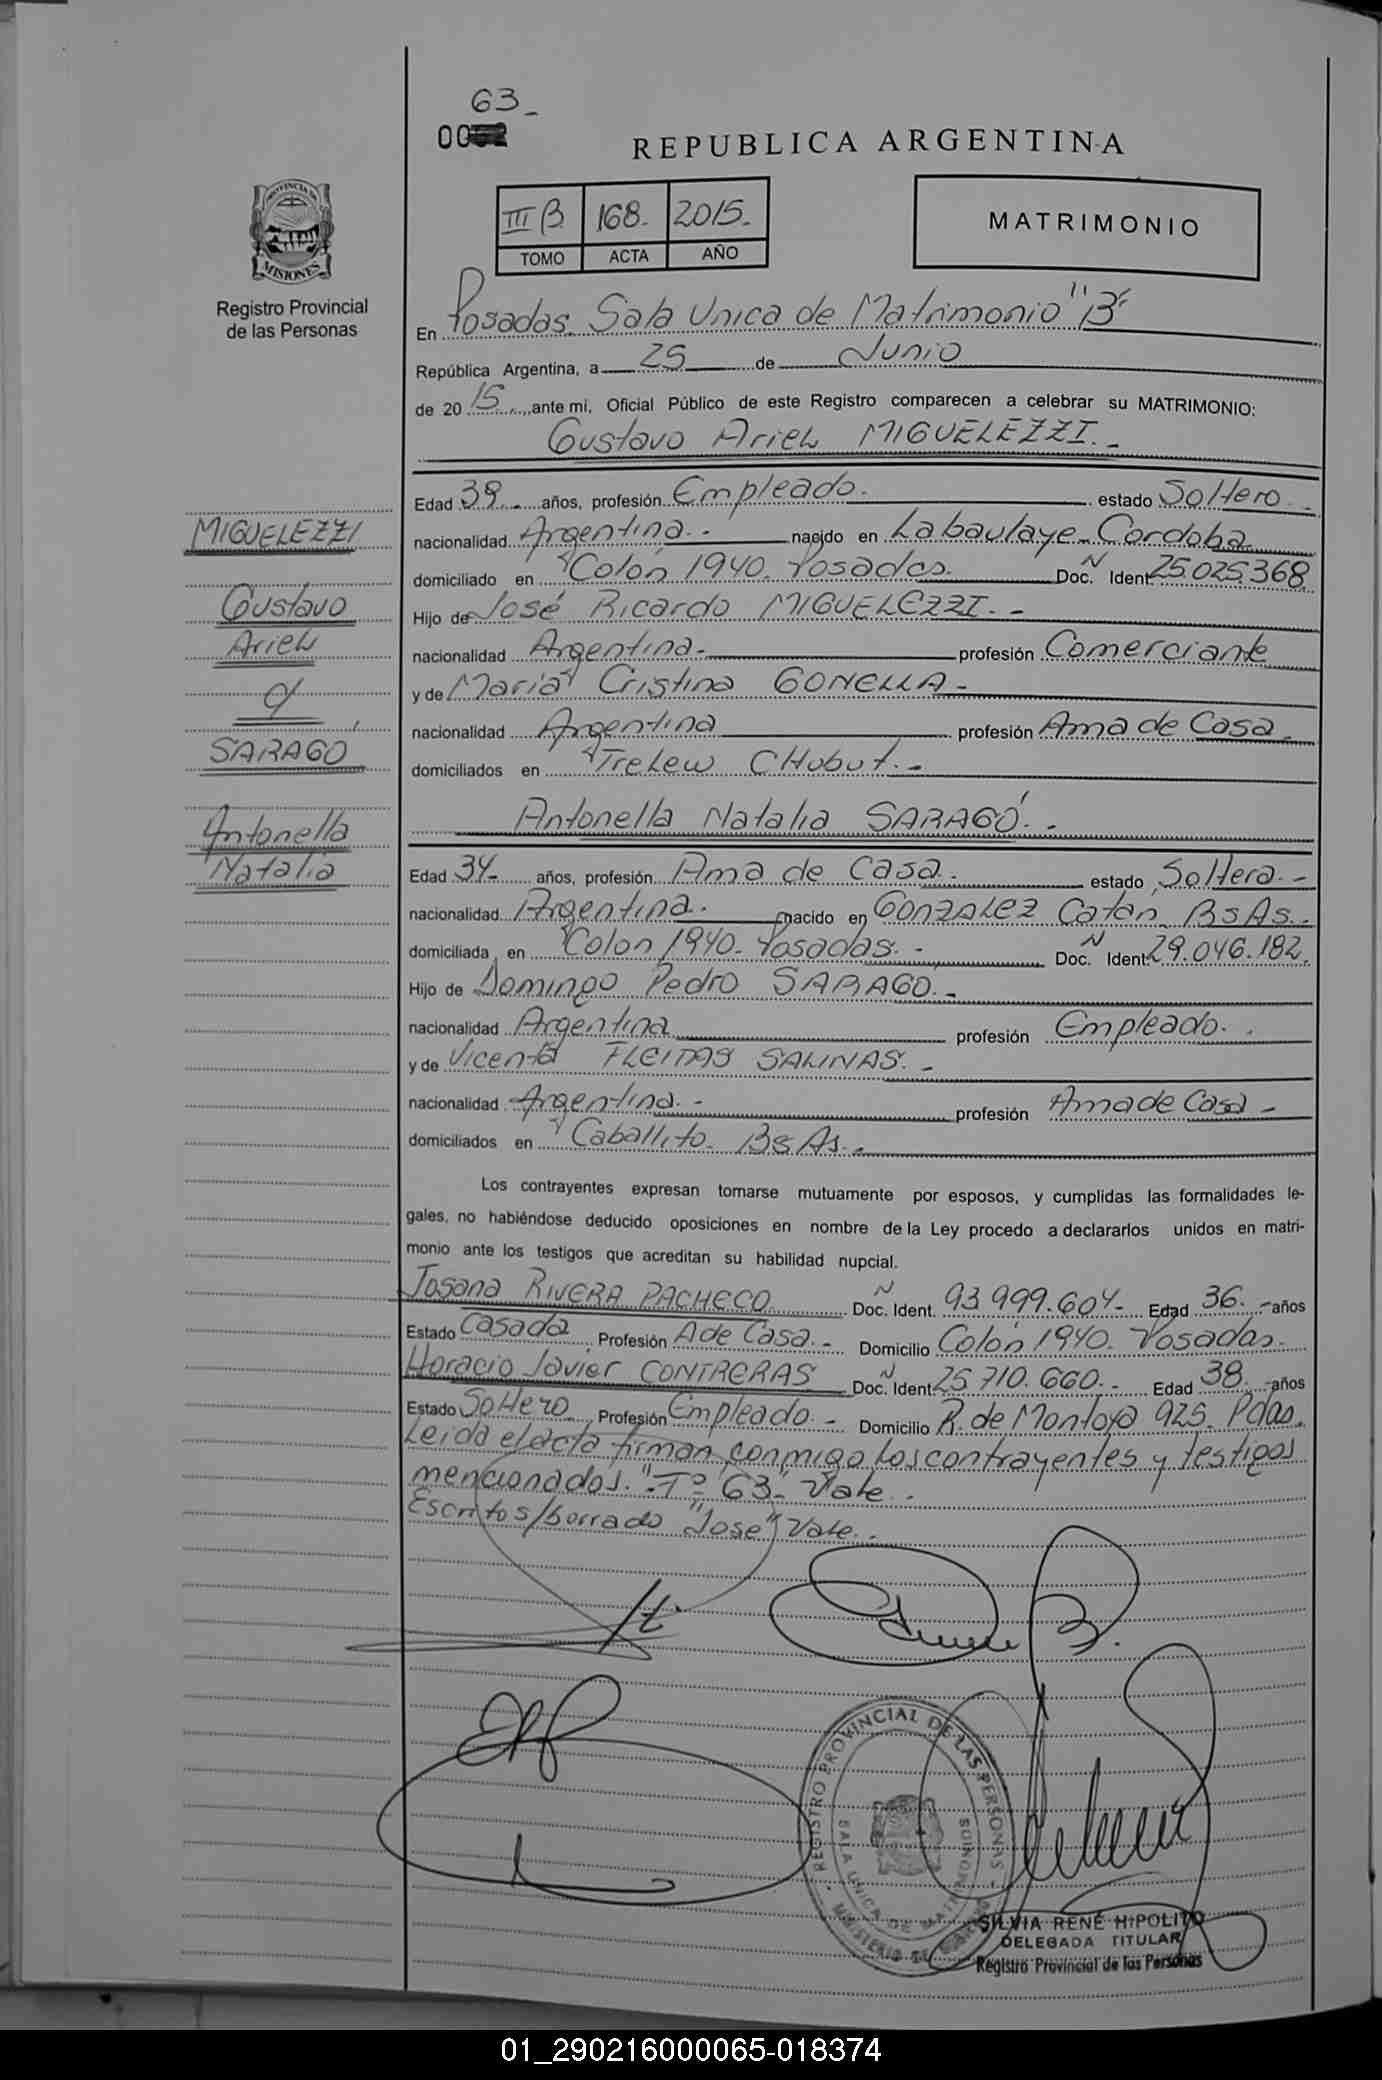 63-
00
REPUBLICA ARGENTINA
III B 168- 2015-
TOMO ACTA AÑO
MATRIMONIO
PROVINCIA DE
MISIONES
Registro Provincial
de las Personas
En Posadas Sala Unica de Matrimonio "B"
República Argentina, a 25 de Junio
de 20 15 ante mi, Oficial Público de este Registro comparecen a celebrar su MATRIMONIO:
Gustavo Ariel MIGUELEZZI.-
Edad 39 años, profesión Empleado. estado Soltero.
nacionalidad Argentina.- nacido en Labaulaye-Cordoba
domiciliado en Colón 1940. Posadas. Doc. N Ident 25.025.368
Hijo de José Ricardo MIGUELEZZI.-
nacionalidad Argentina.- profesión Comerciante
y de María Cristina GONELLA-
nacionalidad Argentina profesión Ama de Casa.
domiciliados en Trelew CHubut.-
Antonella Natalia SARAGÓ.-
Edad 34- años, profesión Ama de Casa. estado Soltera.-
nacionalidad Argentina. nacido en GONZALEZ Catán BsAs.-
domiciliada en Colón 1940- Posadas.- Doc. N Ident 29.046.182.
Hijo de Domingo Pedro SARAGO.-
nacionalidad Argentina profesión Empleado..
y de Vicenta FLEITAS SALINAS.-
nacionalidad Argentina.- profesión Ama de Casa-
domiciliados en Caballito- BsAs.-
MIGUELEZZI
Gustavo
Ariel
SARAGÓ
Antonella
Natalia
Los contrayentes expresan tomarse mutuamente por esposos, y cumplidas las formalidades le-
gales, no habiéndose deducido oposiciones en nombre de la Ley procedo a declararlos unidos en matri-
monio ante los testigos que acreditan su habilidad nupcial.
Josana RIVERA PACHECO Doc. N Ident. 93.999.604- Edad 36.- años
Estado Casada Profesión A de Casa.- Domicilio Colón 1940. Posadas.
Horacio Javier CONTRERAS Doc. N Ident 25.710.660.- Edad 38.- años
Estado Soltero Profesión Empleado.- Domicilio R. de Montoya 925. Pdas.
Leida el acta firman conmigo los contrayentes y testigos
mencionados. "-Tº 63-" Vale.-
Escritos/borrado "José" Vale.-
REGISTRO PROVINCIAL DE LAS PERSONAS
SALA UNICA DE MATRIMONIOS
MINISTERIO DE GOBIERNO
SILVIA RENÉ HIPOLITO
DELEGADA TITULAR
Registro Provincial de las Personas
01_290216000065-018374